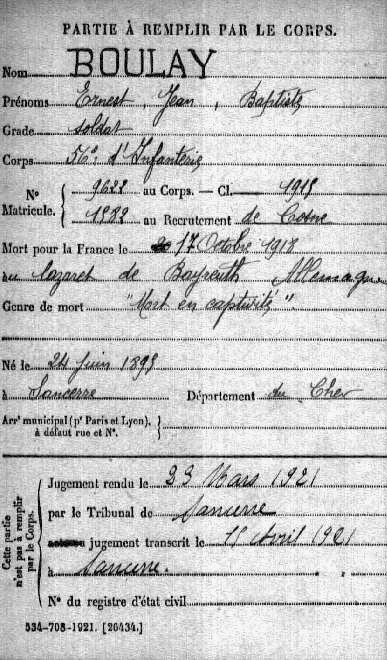 PARTIE À REMPLIR PAR LE CORPS.
Nom BOULAY
Prénoms Ernest, Jean, Baptiste
Grade soldat
Corps 56e d'Infanterie
N° Matricule. { 9622 au Corps. — Cl. 1915
1332 au Recrutement de Cosne
Mort pour la France le 17 Octobre 1918
au lazaret de Bayreuth, Allemagne
Genre de mort "Mort en captivité"
Né le 24 juin 1895
à Sancerre Département du Cher
Arr' municipal (p' Paris et Lyon), à défaut rue et N°. }
Cette partie n'est pas à remplir par le Corps.
Jugement rendu le 23 Mars 1921
par le Tribunal de Sancerre
jugement transcrit le Avril 1921
à Sancerre.
N° du registre d'état civil
534-708-1921. [26434.]